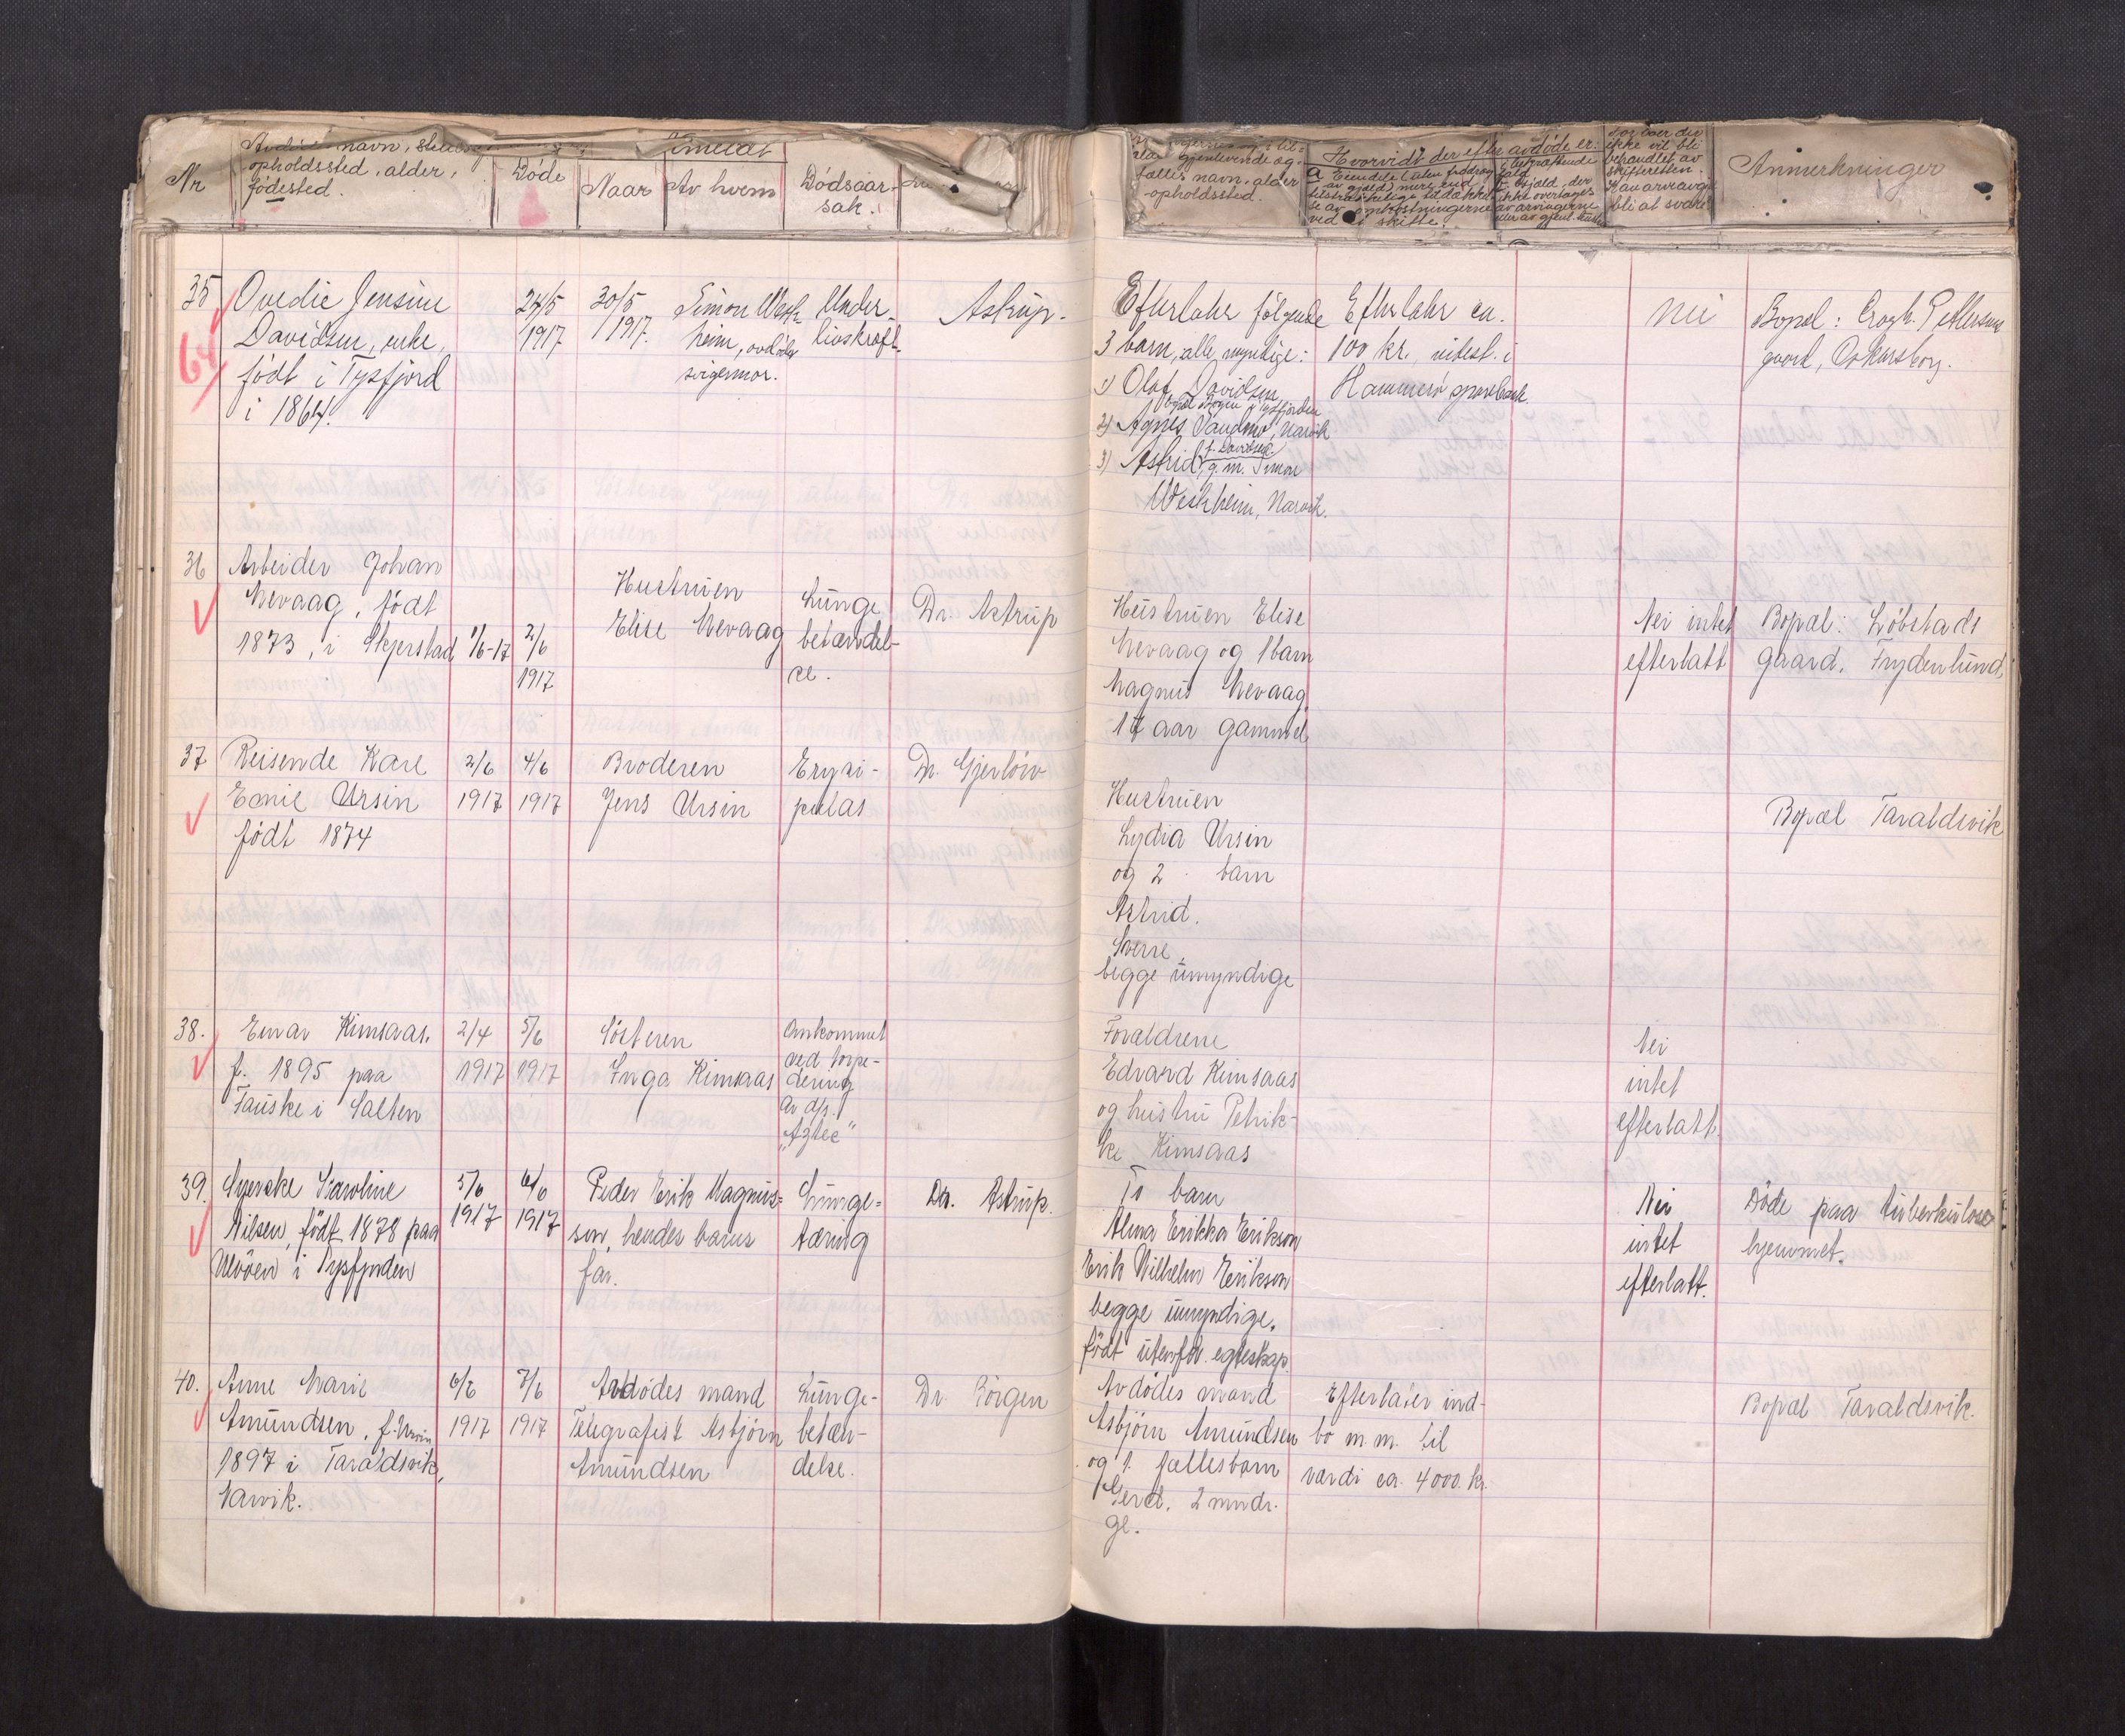 Nr
navn,
opholdssted, alder,
fødested.
Døde
Anmeldt
Naar
Av hvem
Dødsaar-
sak.
gjenlevende æg-
fælles navn, alder
opholdssted.
Hvorvidt der efter avdøde er:
ikke vil bli
behandlet av
skifteretten.
bli at svare
Anmerkninger
35
64
Ovedie Jensine
Davidsen, enke,
født i Tysfjord
i 1864.
24/5
1917
30/5
1917.
Simon West-
heim, avdødes
svigersøn.
Under-
livskræft.
Astrup.
Efterlater følgende
3 barn, alle myndige:
1) Olaf Davidsen
bopæl Bogen i Tysfjorden
2) Agnes Sandmo, Narvik
3) Astrid f. Davidsen
g. m. Simon
Westheim, Narvik.
Efterlater ca.
100 kr. indest. i
Hammerø sparebank.
nei
Bopæl: Erogh. Pettersens
gaard, Oskarsborg.
36
Arbeider Johan
Mevaag, født
1873, i Skjerstad
1/6-17
2/6
1917
Hustruen
Elise Mevaag
Lunge
betændel-
se.
Dr. Astrup
Hustruen Elise
Mevaag og 1 barn
Magnus Mevaag
17 aar gammel
Nei intet
efterlatt
Bopæl: Løbstads
gaard. Frydenlund
37
Reisende Kare
Emil Ursin
født 1874
2/6
1917
4/6
1917
Broderen
Jens Ursin
Erysi-
pelas
Dr. Gjerløw
Hustruen
Lydia Ursin
og 2 barn
Astrid.
Sverre,
begge umyndige
Bopæl Taraldsvik
38.
Einar Kimsaas.
f. 1895 paa
Fauske i Salten
2/4
1917
5/6
1917
Søsteren
Inga Kimsaas
Omkommet
ved torpe-
dering
av d/s.
"Aztec"
Forældrene
Edvard Kimsaas
og hustru Petrik-
ke Kimsaas
Nei
intet
efterlatt.
39.
Syverke Karoline
Nilsen, født 1878 paa
Ulvøen i Tysfjorden
5/6
1917
6/6
1917
Peder Erik Magnus-
sen, hendes barns
far.
Lunge-
tæring
Dr. Astrup.
To barn
Alma Erikka Erikson
Erik Wilhelm Erikson
begge umyndige.
født utenfor egteskap.
Nei
intet
efterlatt.
Døde paa tuberkulose
hjemmet.
40.
Anne Marie
Amundsen, f. Ursin
1897 i Taraldsvik,
Narvik.
6/6
1917
7/6
1917
Avdødes mand
Telegrafist Asbjørn
Amundsen
Lunge-
betæn-
delse.
Dr. Børgen
Avdødes mand
Asbjørn Amundsen
og 1. fællesbarn
Gerd. 2 mndr.
gl.
Efterlater ind-
bo m.m. til
værdi ca. 4000. kr.
Bopæl Taraldsvik.